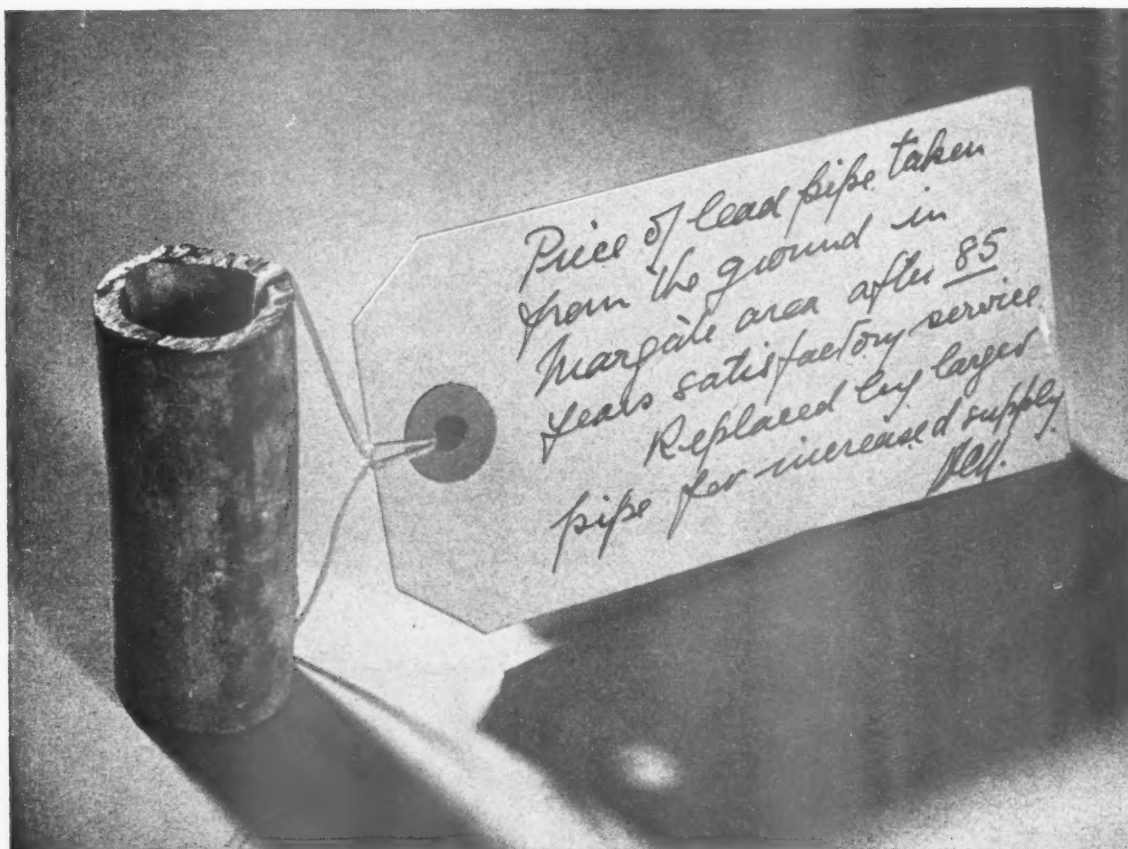 Piece of lead pipe taken
from the ground in
Margate area after 85
years satisfactory service.
Replaced by larger
pipe for increased supply